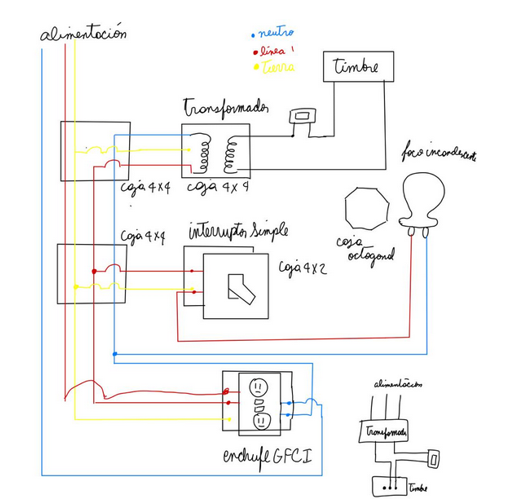 alimentación
neutro
línea 1
tierra
timbre
transformador
foco incandescente
caja 4x4
caja 4x4
caja 4x4
interruptor simple
caja 4x2
caja
octogonal
alimentación
transformador
enchufe GFCI
timbre